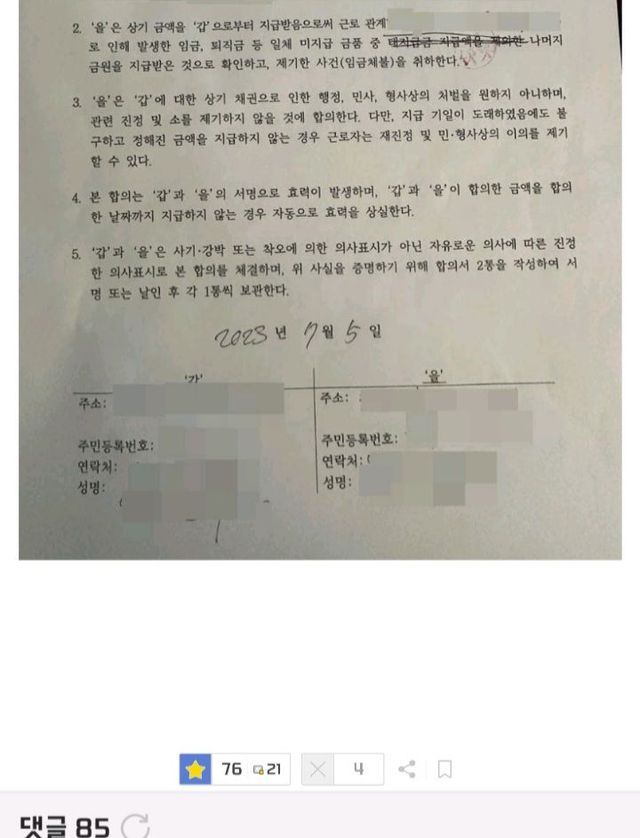 2. '을'은 상기 금액을 '갑'으로부터 지급받음으로써 근로 관계
로 인해 발생한 임금, 퇴직금 등 일체 미지급 금품 중 대지급금 지급액을 제외한 나머지
금원을 지급받은 것으로 확인하고, 제기한 사건(임금체불)을 취하한다.
3. '을'은 '갑'에 대한 상기 채권으로 인한 행정, 민사, 형사상의 처벌을 원하지 아니하며,
관련 진정 및 소를 제기하지 않을 것에 합의한다. 다만, 지급 기일이 도래하였음에도 불
구하고 정해진 금액을 지급하지 않는 경우 근로자는 재진정 및 민·형사상의 이의를 제기
할 수 있다.
4. 본 합의는 '갑'과 '을'의 서명으로 효력이 발생하며, '갑'과 '을'이 합의한 금액을 합의
한 날짜까지 지급하지 않는 경우 자동으로 효력을 상실한다.
5. '갑'과 '을'은 사기·강박 또는 착오에 의한 의사표시가 아닌 자유로운 의사에 따른 진정
한 의사표시로 본 합의를 체결하며, 위 사실을 증명하기 위해 합의서 2통을 작성하여 서
명 또는 날인 후 각 1통씩 보관한다.
2023년 7월 5일
'갑' '을'
주소: 주소:
주민등록번호: 주민등록번호:
연락처: 연락처:
성명: 성명:
76 21 4
댓글 85